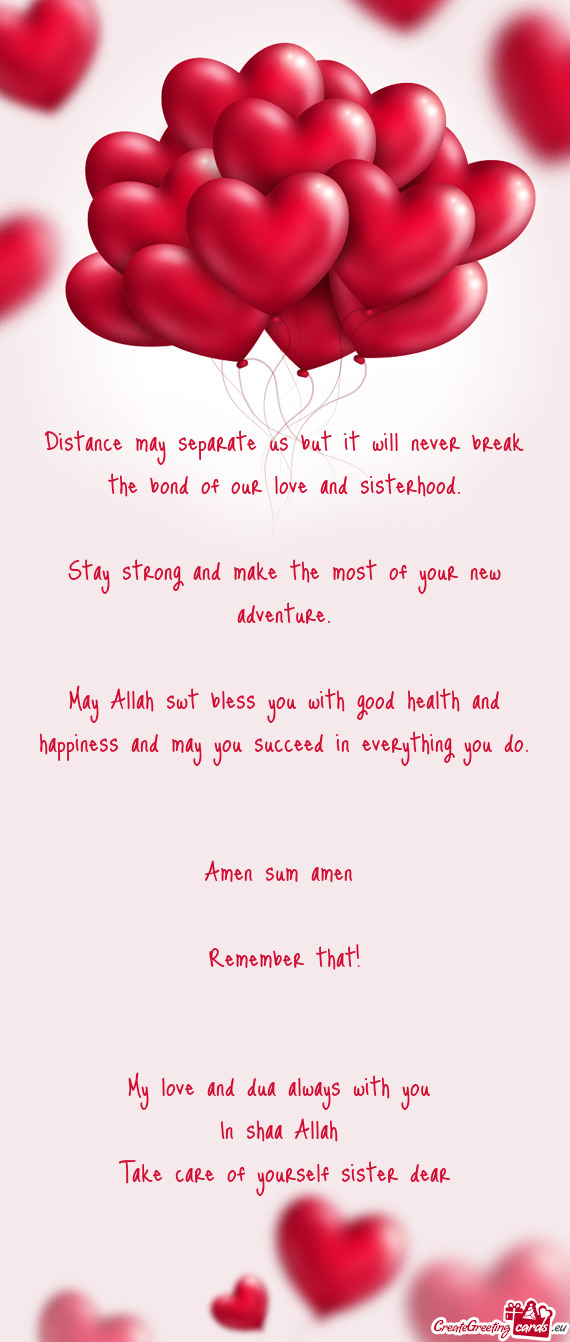 Distance may separate us but it will never break
the bond of our love and sisterhood.
Stay strong and make the most of your new
adventure.
May Allah swt bless you with good health and
happiness and may you succeed in everything you do.
Amen sum amen
Remember that!
My love and dua always with you
In shaa Allah
Take care of yourself sister dear
CreateGreeting cards .eu